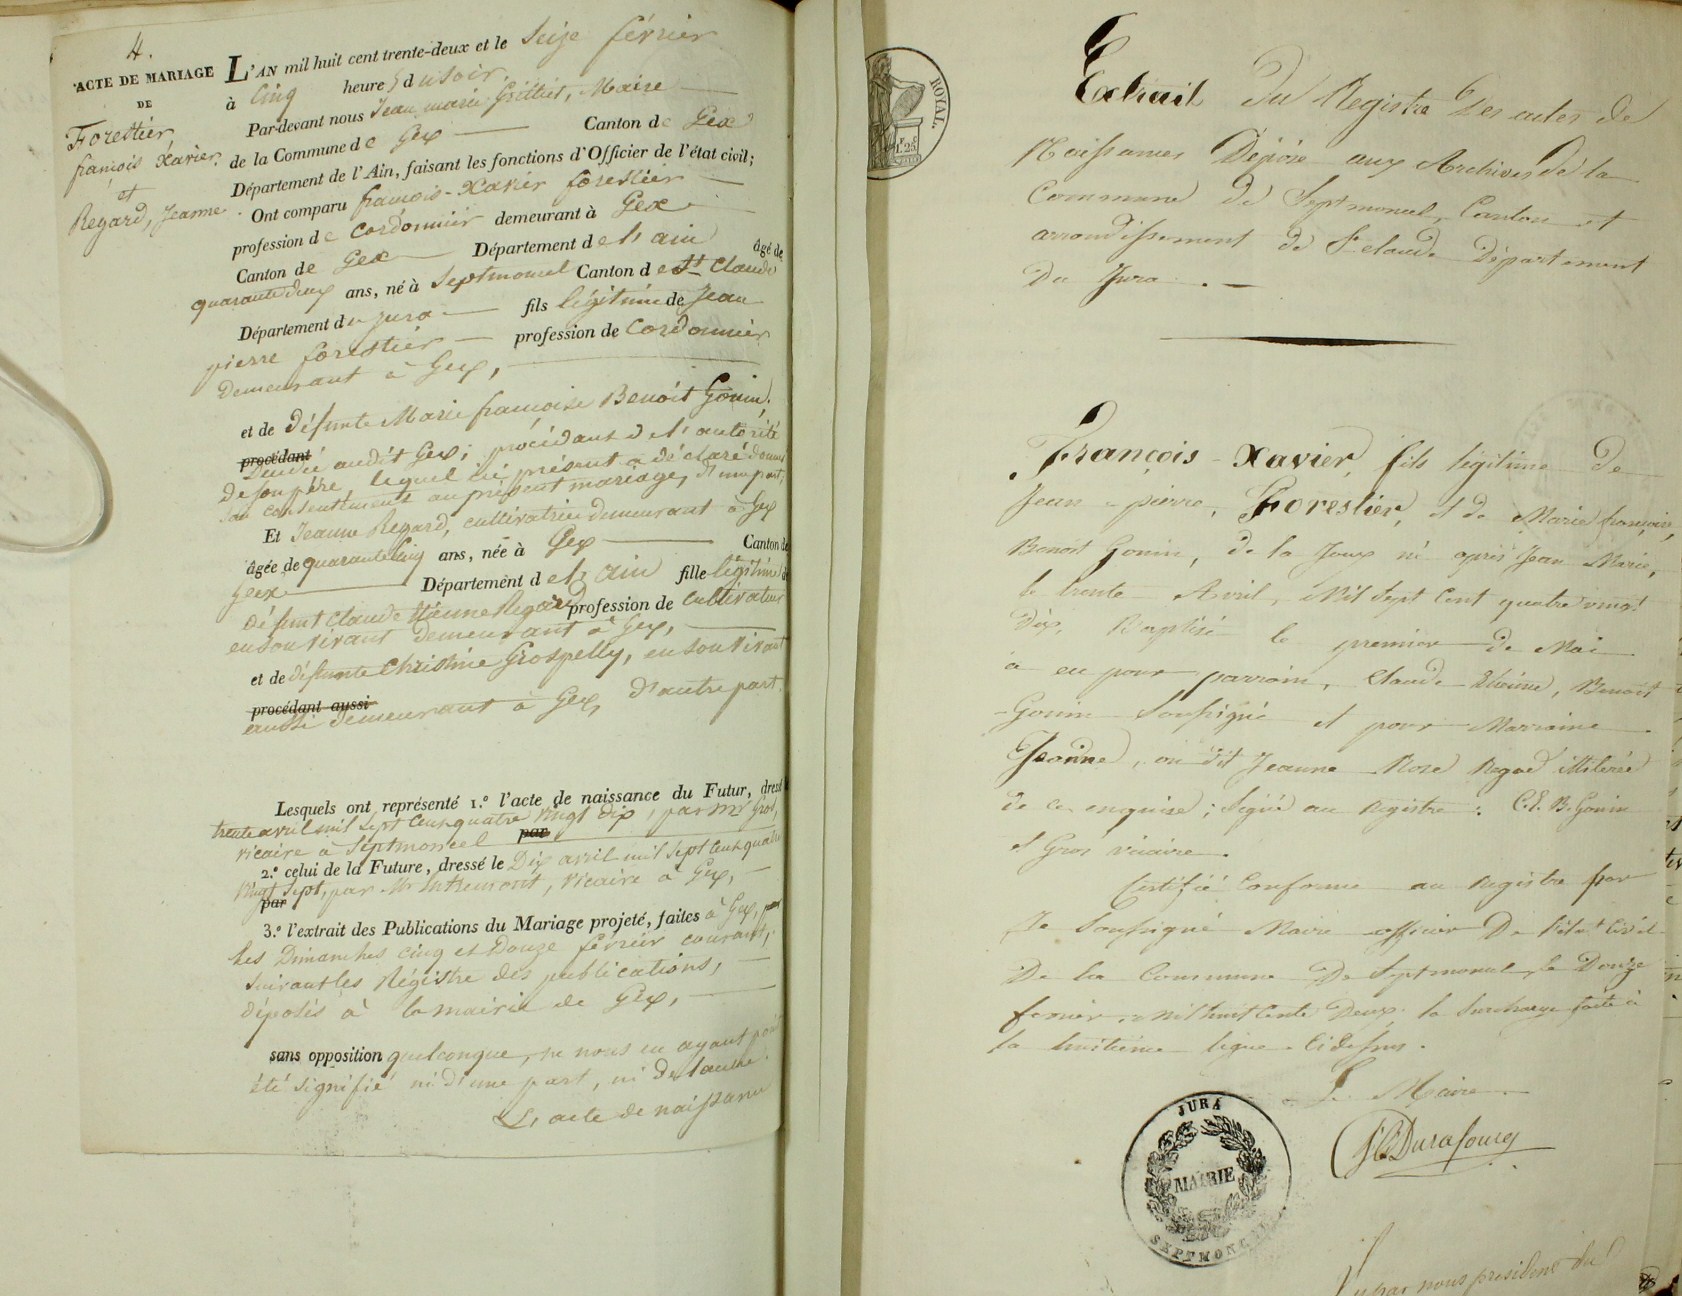 4.
ACTE DE MARIAGE
DE
Forestier
françois Xavier,
et
Regard, Jeanne.
L'AN mil huit cent trente-deux et le Seize février
à Cinq heures du soir,
Par-devant nous Jean marie Grilliet, Maire
de la Commune de Gex Canton de Gex
Département de l'Ain, faisant les fonctions d'Officier de l'état civil;
Ont comparu françois-Xavier forestier
profession de Cordonnier demeurant à Gex
Canton de Gex Département de l'ain âgé de
quarante deux ans, né à Septmoncel Canton de St Claude
Département du Jura fils légitime de Jean
pierre forestier profession de Cordonnier
demeurant à Gex,
et de défunte Marie françoise Benoit Gonin,
procédant
audit Gex; procédant de l'autorité
de son père, lequel ici présent a déclaré donner
son consentement au présent mariage, d'une part;
Et Jeanne Regard, cultivatrice demeurant à Gex
âgée de quarante cinq ans, née à Gex Canton de
Gex Département de l'ain fille légitime de
défunt Claude Etienne Regard profession de Cultivateur
en son vivant demeurant à Gex,
et de défunte Christine Grospelly, en son vivant
procédant aussi
aussi demeurant à Gex, d'autre part.
Lesquels ont représenté 1.º l'acte de naissance du Futur, dressé
trente avril mil sept cent quatre vingt dix, par Mr Gros,
vicaire à Septmoncel par
2.º celui de la Future, dressé le Dix avril mil sept cent quatre
vingt sept, par Mr Intremont, vicaire à Gex,
par
3.º l'extrait des Publications du Mariage projeté, faites à Gex,
les Dimanches cinq et Douze février courant,
suivant les Régistre des publications,
déposés à la mairie de Gex,
sans opposition quelconque, ne nous en ayant point
été signifié ni d'une part, ni de l'autre.
L'acte de naissance
ROYAL.
1F. 25
Extrait du Registre des actes de
Naissances Déposé aux Archives de la
Commune de Septmoncel, Canton et
arrondissement de St Claude Département
du Jura.
François-Xavier, fils légitime de
Jean-pierre, Forestier, et de Marie françoise,
Benoit Gonin, de la Joux né après Jean Marie,
le trente Avril, Mil Sept Cent quatre vingt
dix, Baptisé le premier de Mai
a eu pour parrain, Claude Etienne, Benoit
Gonin Soussigné et pour Marraine
Jeanne, on dit Jeanne Rose Regad illitérée
de ce enquise; Signé au Registre: C.E. B. Gonin
et Gros vicaire.
Certifié Conforme au Registre par
le Soussigné Maire officier De l'état Civil
De la Commune De Septmoncel, le Douze
fevrier mil huit Cent trente Deux. la Surcharge faite à
la huitième ligne Ci dessus.
Le Maire
Durafourg
JURA
MAIRIE
SEPTMONCEL
Vu par nous président du